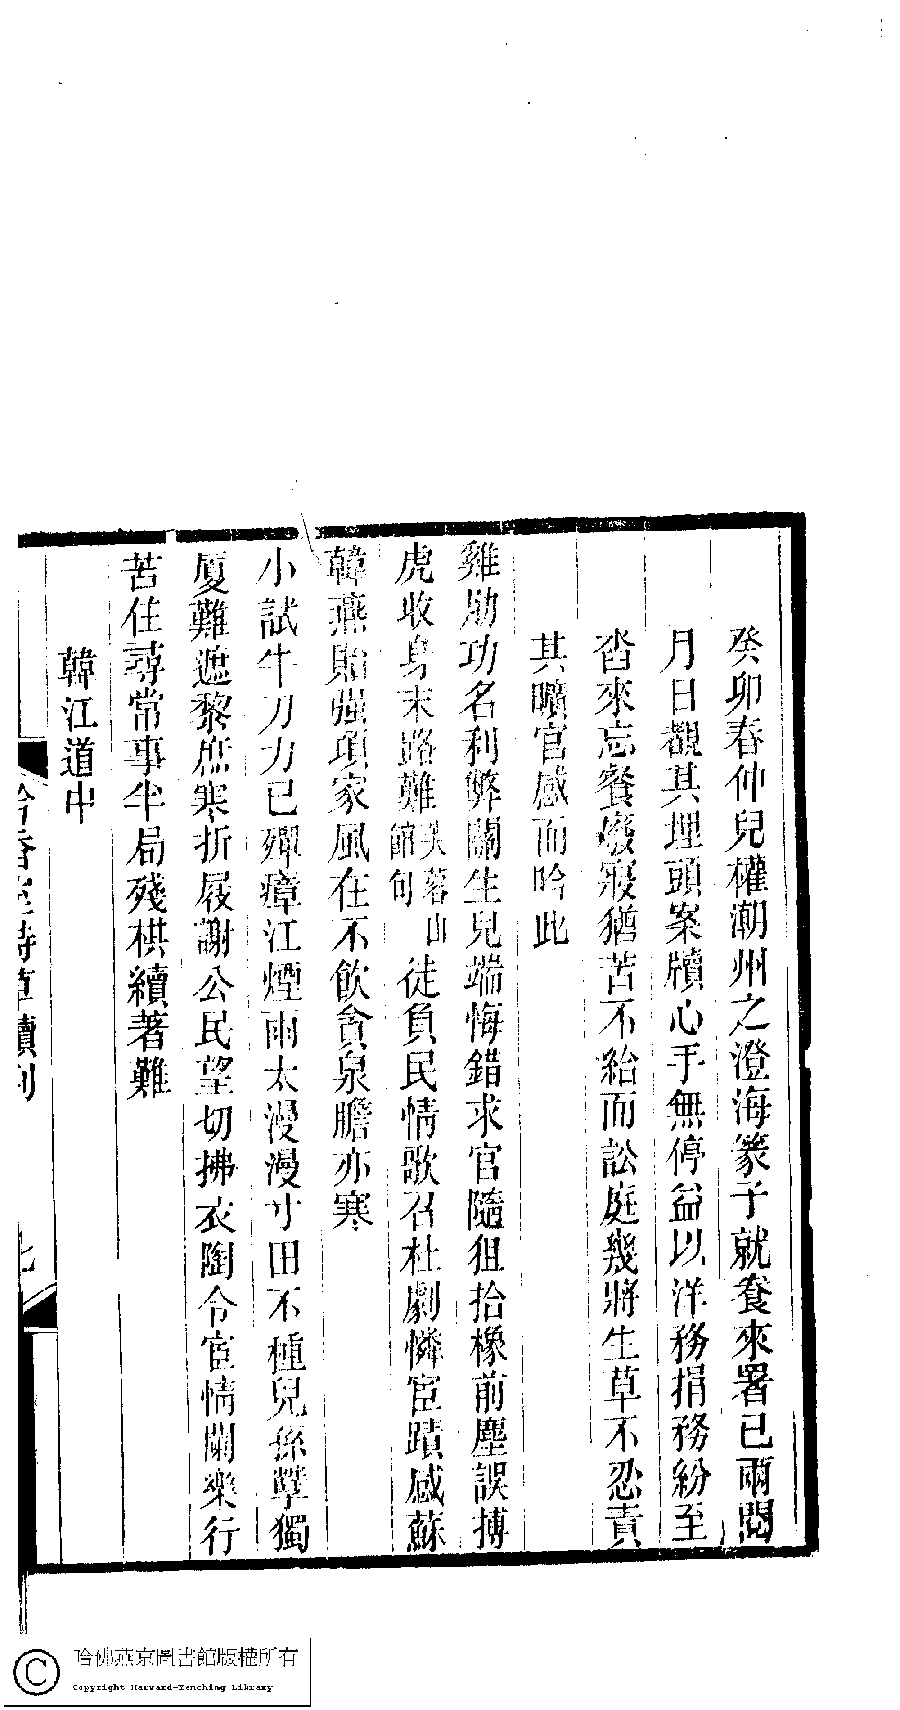 癸卯春仲兒權潮州之澄海篆予就養來署已兩閱
月日觀其埋頭案牘心手無停益以洋務捐務紛至
沓來忘餐廢寢猶苦不給而訟庭幾將生草不忍責
其曠官感而吟此
雞肋功名利弊關生兒端悔錯求官隨狙拾橡前塵誤搏
虎收身末路難
館句
徒負民情歌召杜劇憐宦蹟感蘇
韓燕貽強項家風在不飲貪泉膽亦寒
小試牛刀力已殫瘴江煙雨太漫漫寸田不種兒孫孽獨
廈難遮黎庶寒折屐謝公民望切拂衣陶令宦情闌來行
苦住尋常事半局殘棋續著難
韓江道中
吟香室詩草續刊
七
哈佛燕京圖書館版權所有
Copyright Harvard-Yenching Library